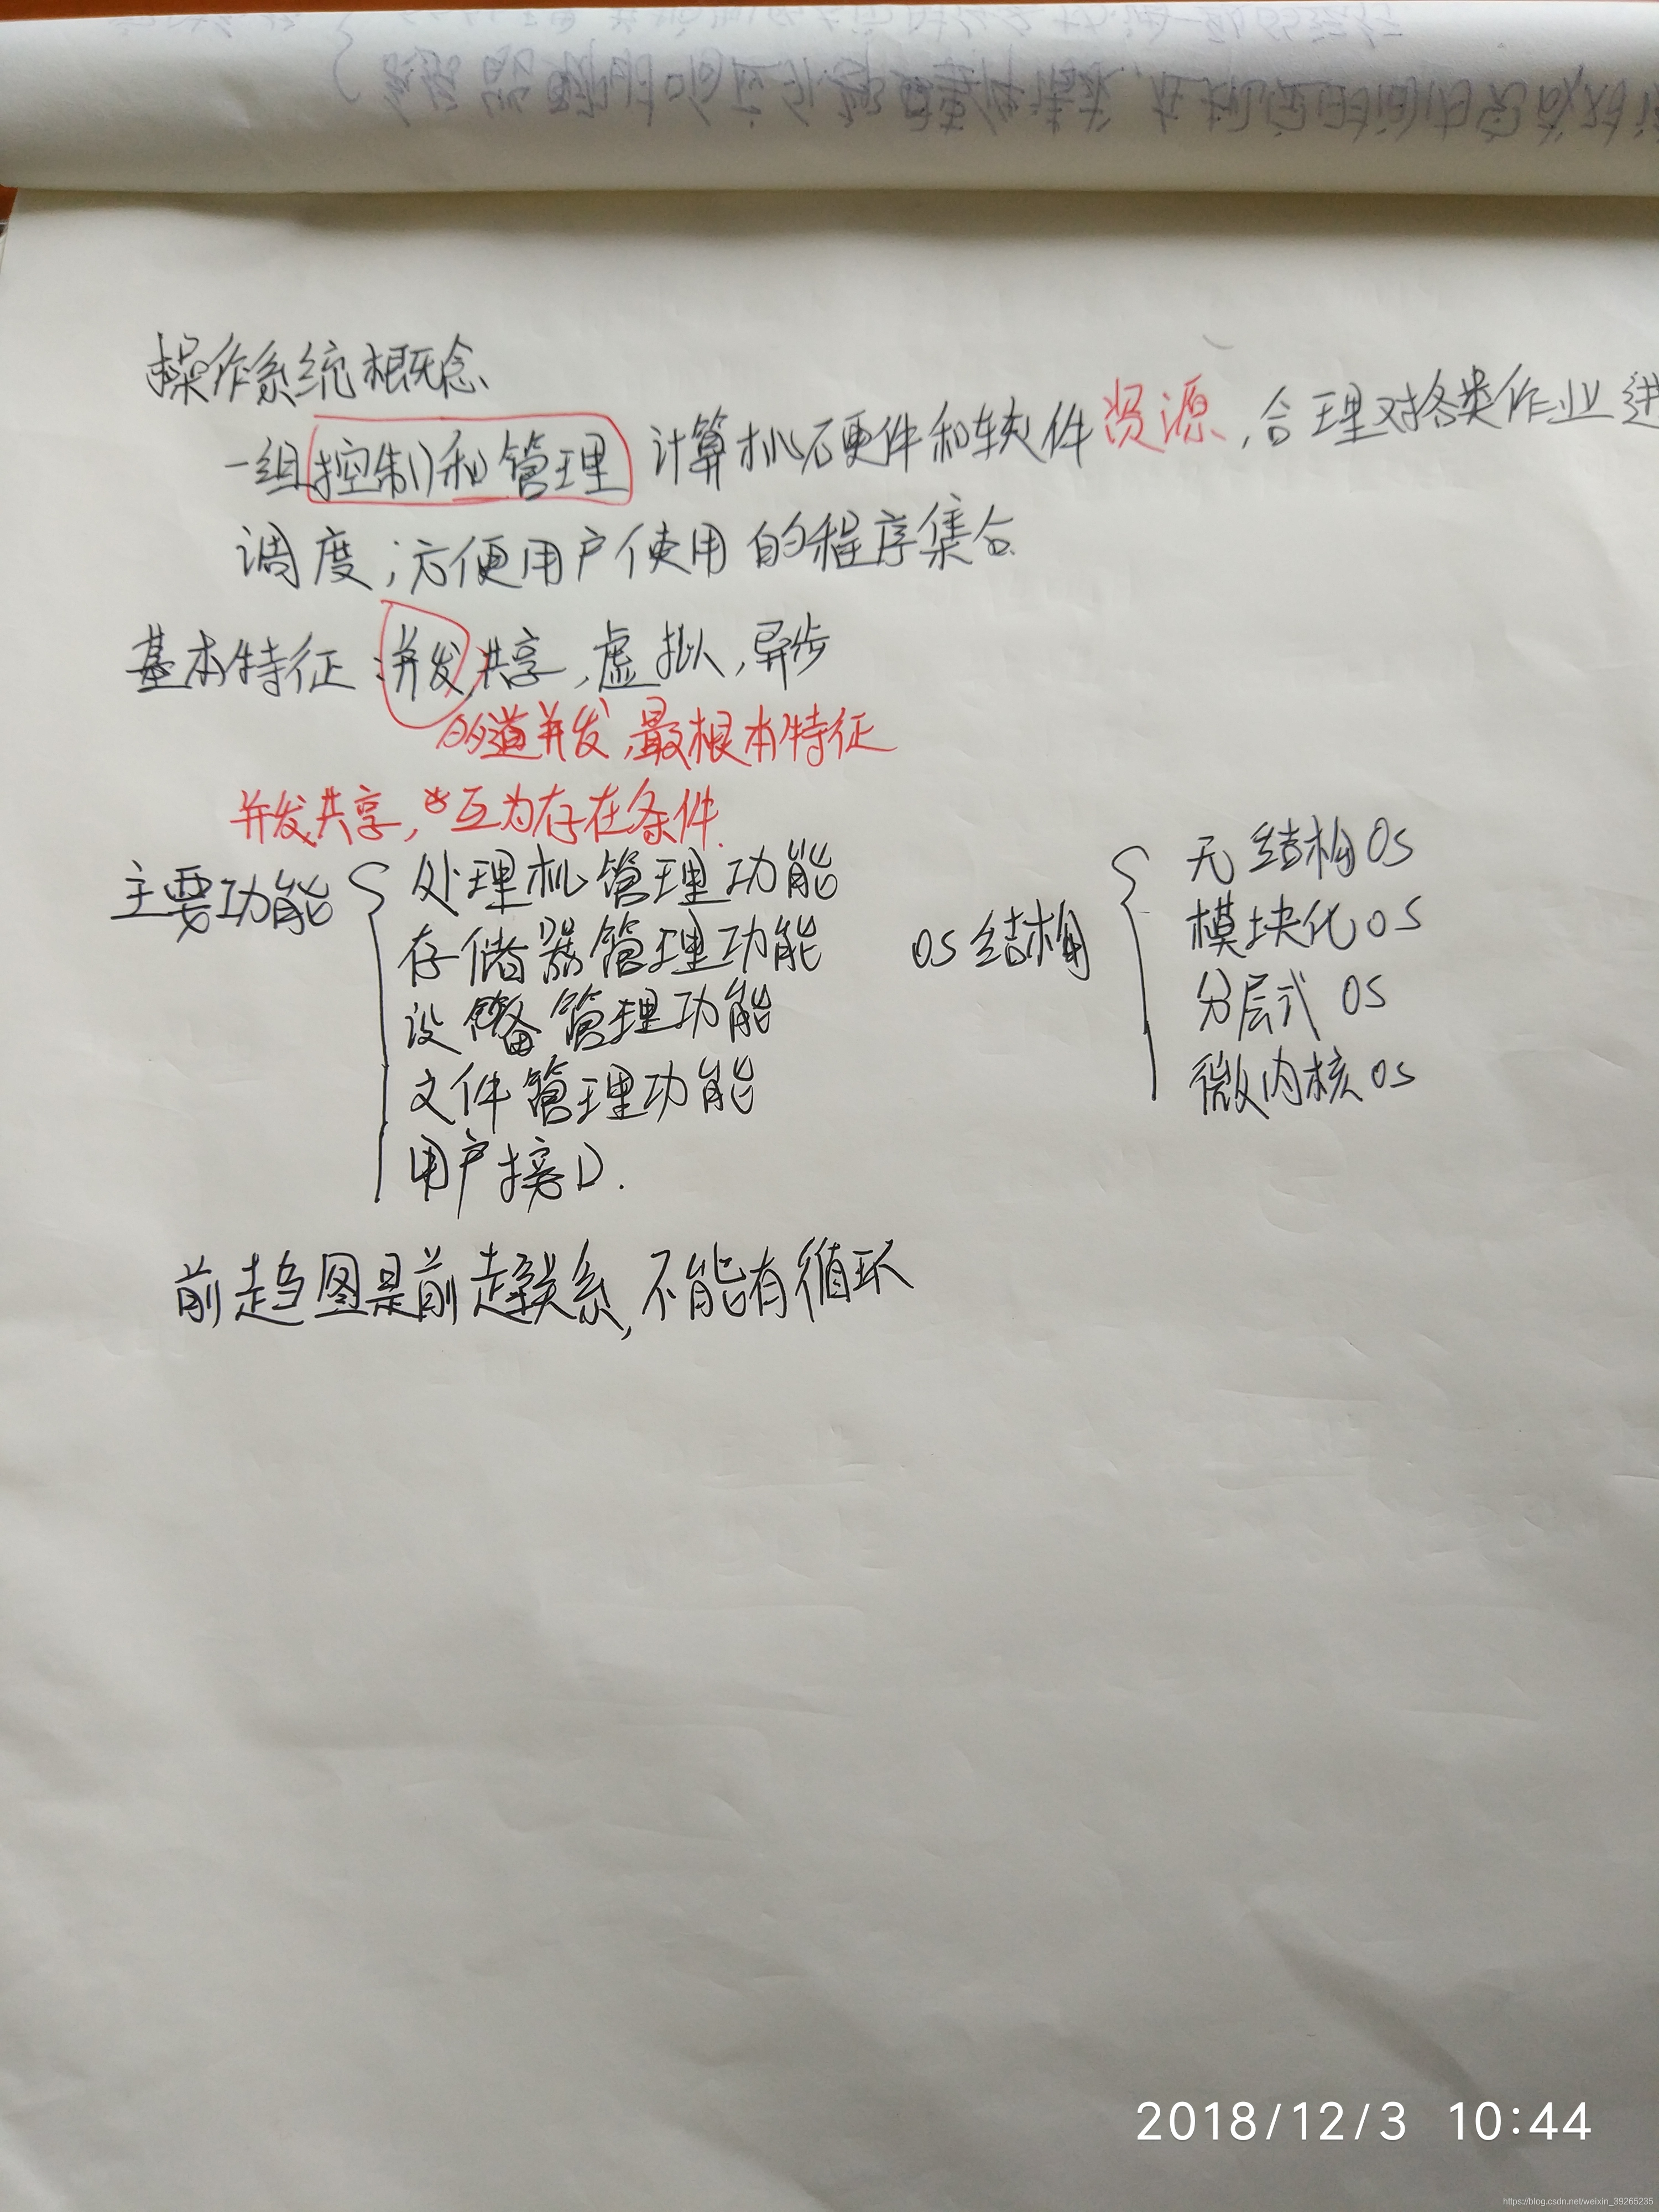 操作系统概念
一组控制和管理 计算机硬件和软件资源,合理对各类作业进
调度;方便用户使用的程序集合
基本特征:并发,共享,虚拟,异步
道并发,最根本特征
并发共享,互为存在条件.
主要功能
处理机管理功能
存储器管理功能
设备管理功能
文件管理功能
用户接口.
OS结构
无结构OS
模块化OS
分层式 OS
微内核OS
前趋图是前趋关系,不能有循环
2018/12/3 10:44
https://blog.csdn.net/weixin_39265235